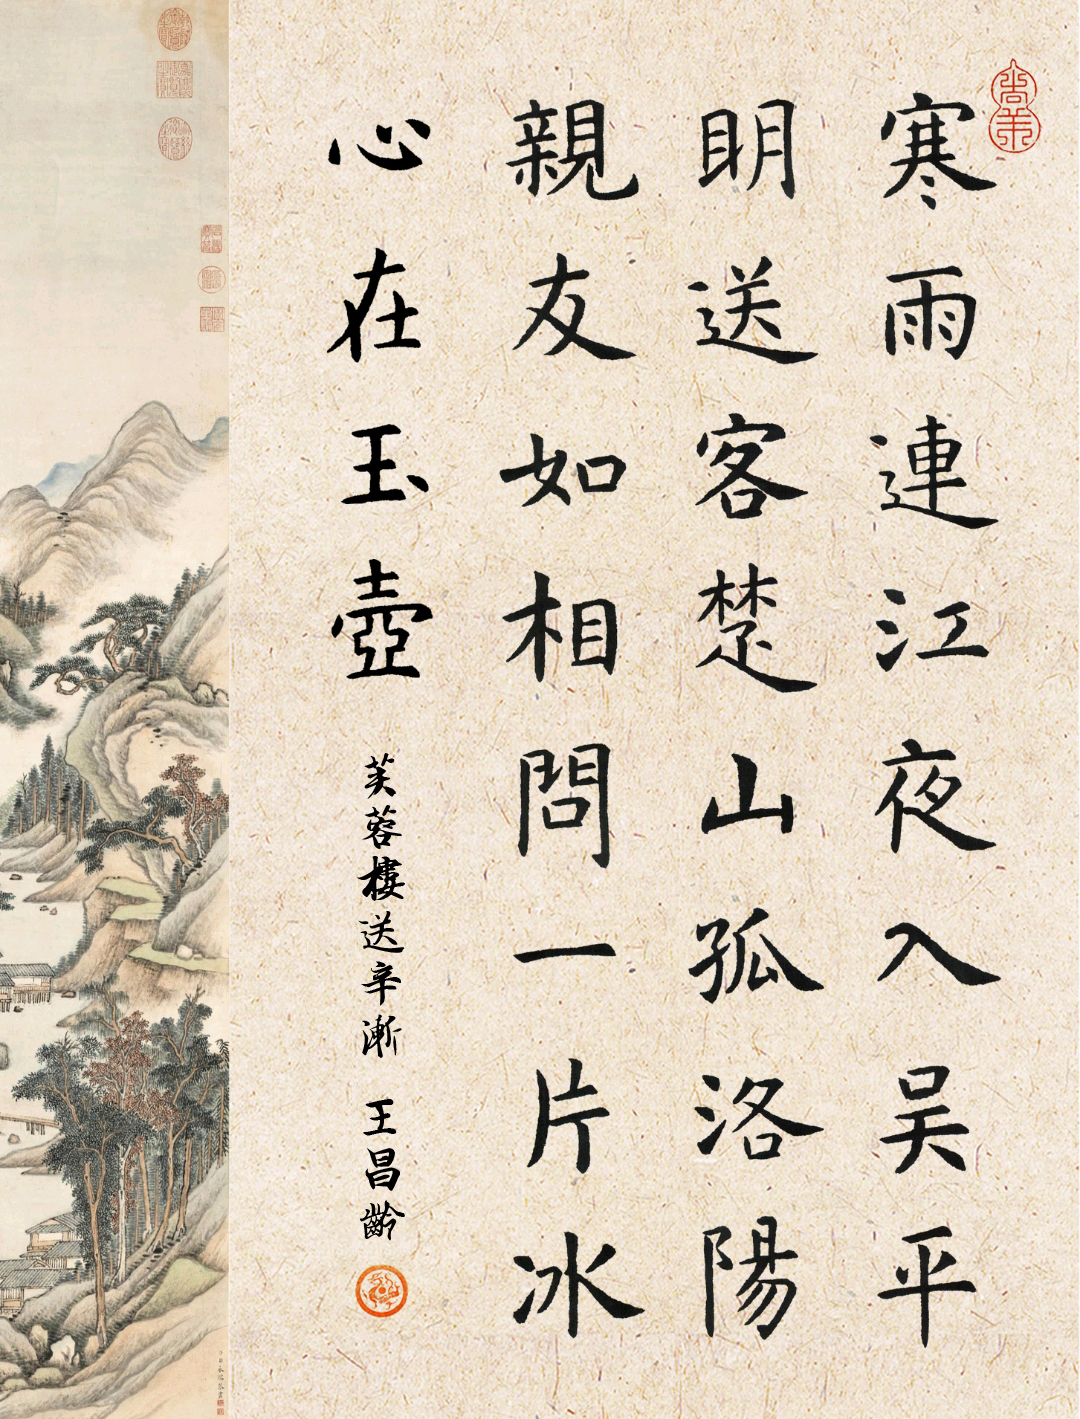 寒雨連江夜入吴平
明送客楚山孤洛陽
親友如相問一片冰
心在玉壺
芙蓉樓送辛漸 王昌齡